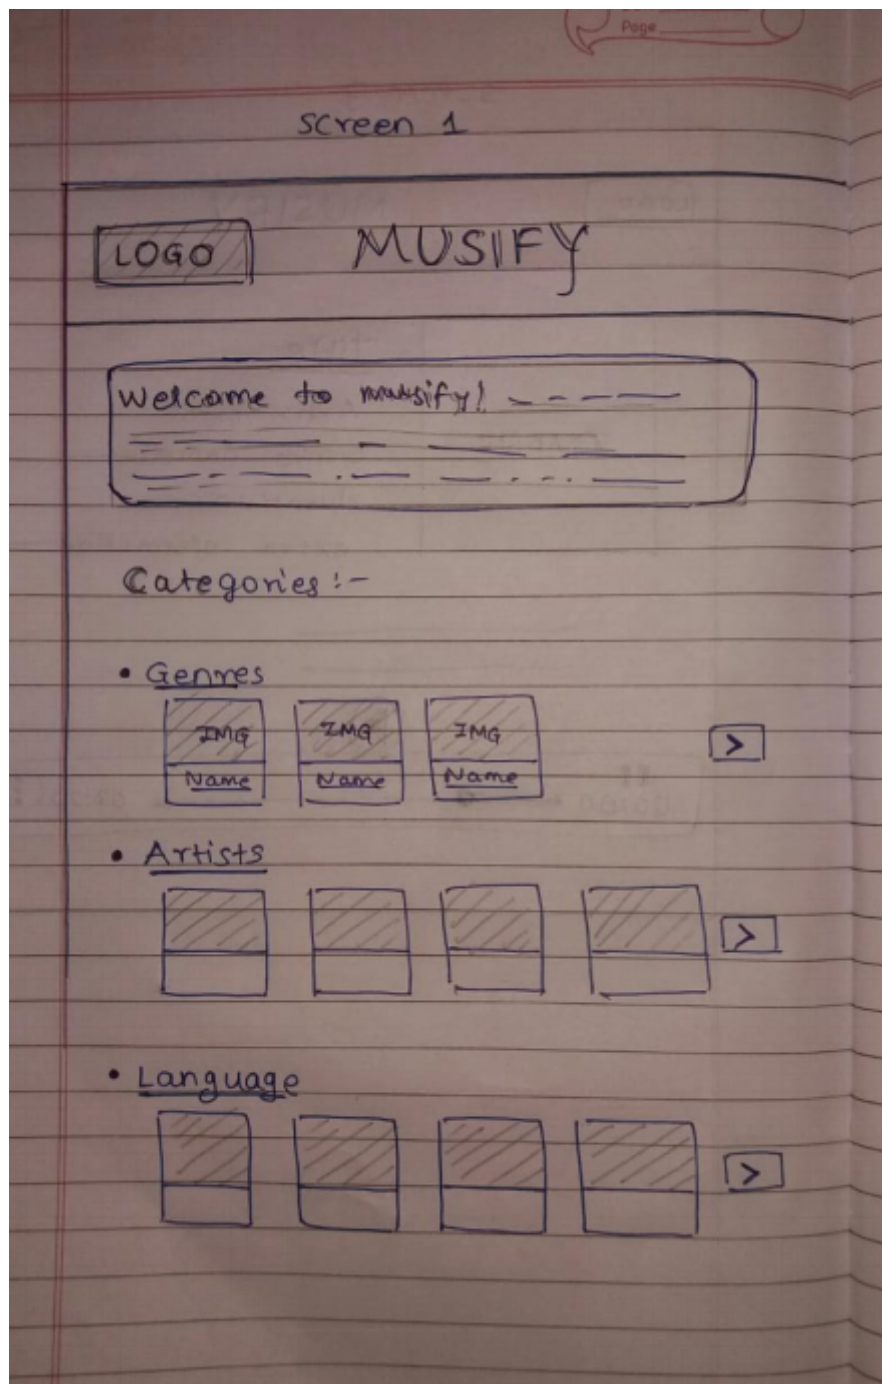 Page
Screen 1
LOGO MUSIFY
Welcome to musify!
Categories :-
• Genres
IMG IMG IMG
Name Name Name
>
• Artists
>
• Language
>